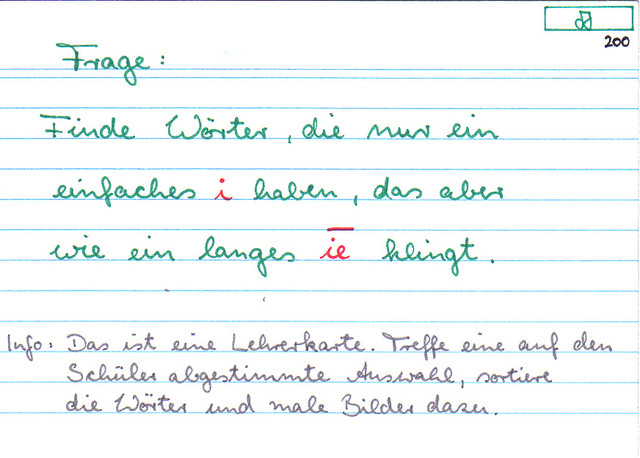 200
Frage:
Finde Wörter, die nur ein
einfaches i haben, das aber
wie ein langes ie klingt.
Info: Das ist eine Lehrerkarte. Treffe eine auf den
Schüler abgestimmte Auswahl, sortiere
die Wörter und male Bilder dazu.